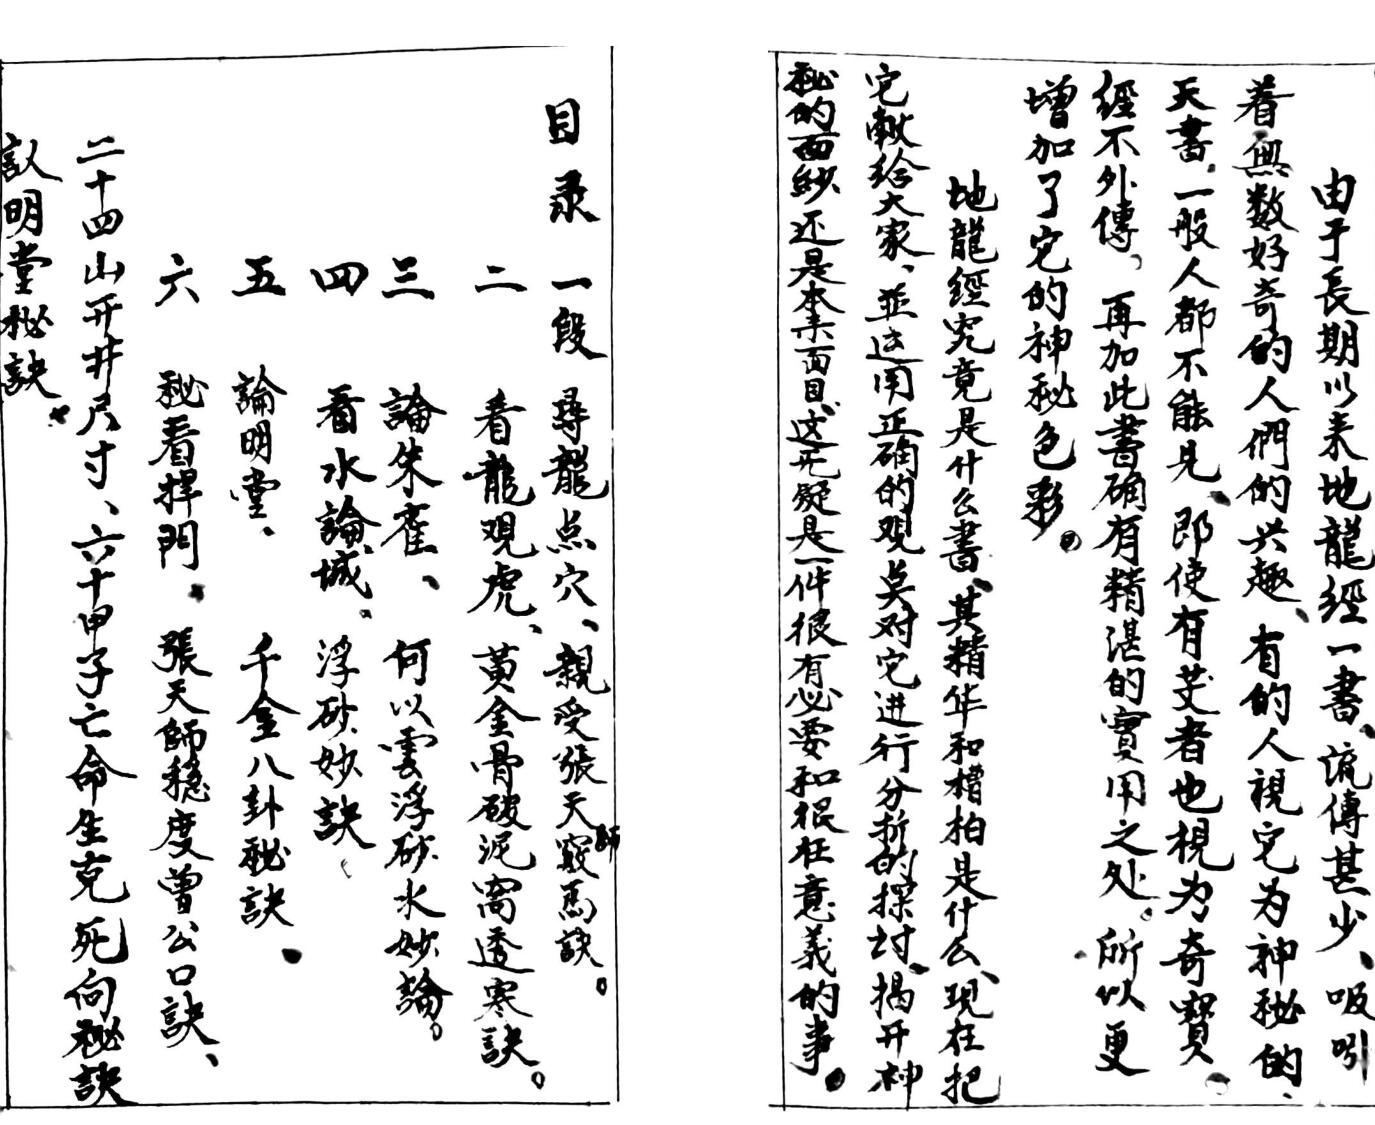 由于長期以来地龍經一書、流傳甚少、吸引
着無数好奇的人們的兴趣、有的人視它为神秘的、
天書、一般人都不能見、即使有芝者也視为奇寳
經不外傳、再加此書确有精湛的實用之处、所以更
增加了它的神秘色彩。
地龍經究竟是什么書、其精华和糟柏是什么、現在把
它献给大家、並运用正确的观点对它进行分析的探討、揭开神
秘的面紗还是本来面目、这无疑是一件很有必要和很在意義的事。
目录 一段 尋龍点穴、親受張天師竅馬訣。
二 看龍观虎、黄金骨破泥窩透寒訣。
三 論朱雀、何以雲浮砂水妙論。
四 看水論城、浮砂妙訣、
五 論明堂、千金八卦秘訣、
六 秘看捍門、張天師穏度曾公口訣、
二十四山开井尺寸、六十甲子亡命生克死向秘訣
訍明堂秘訣、